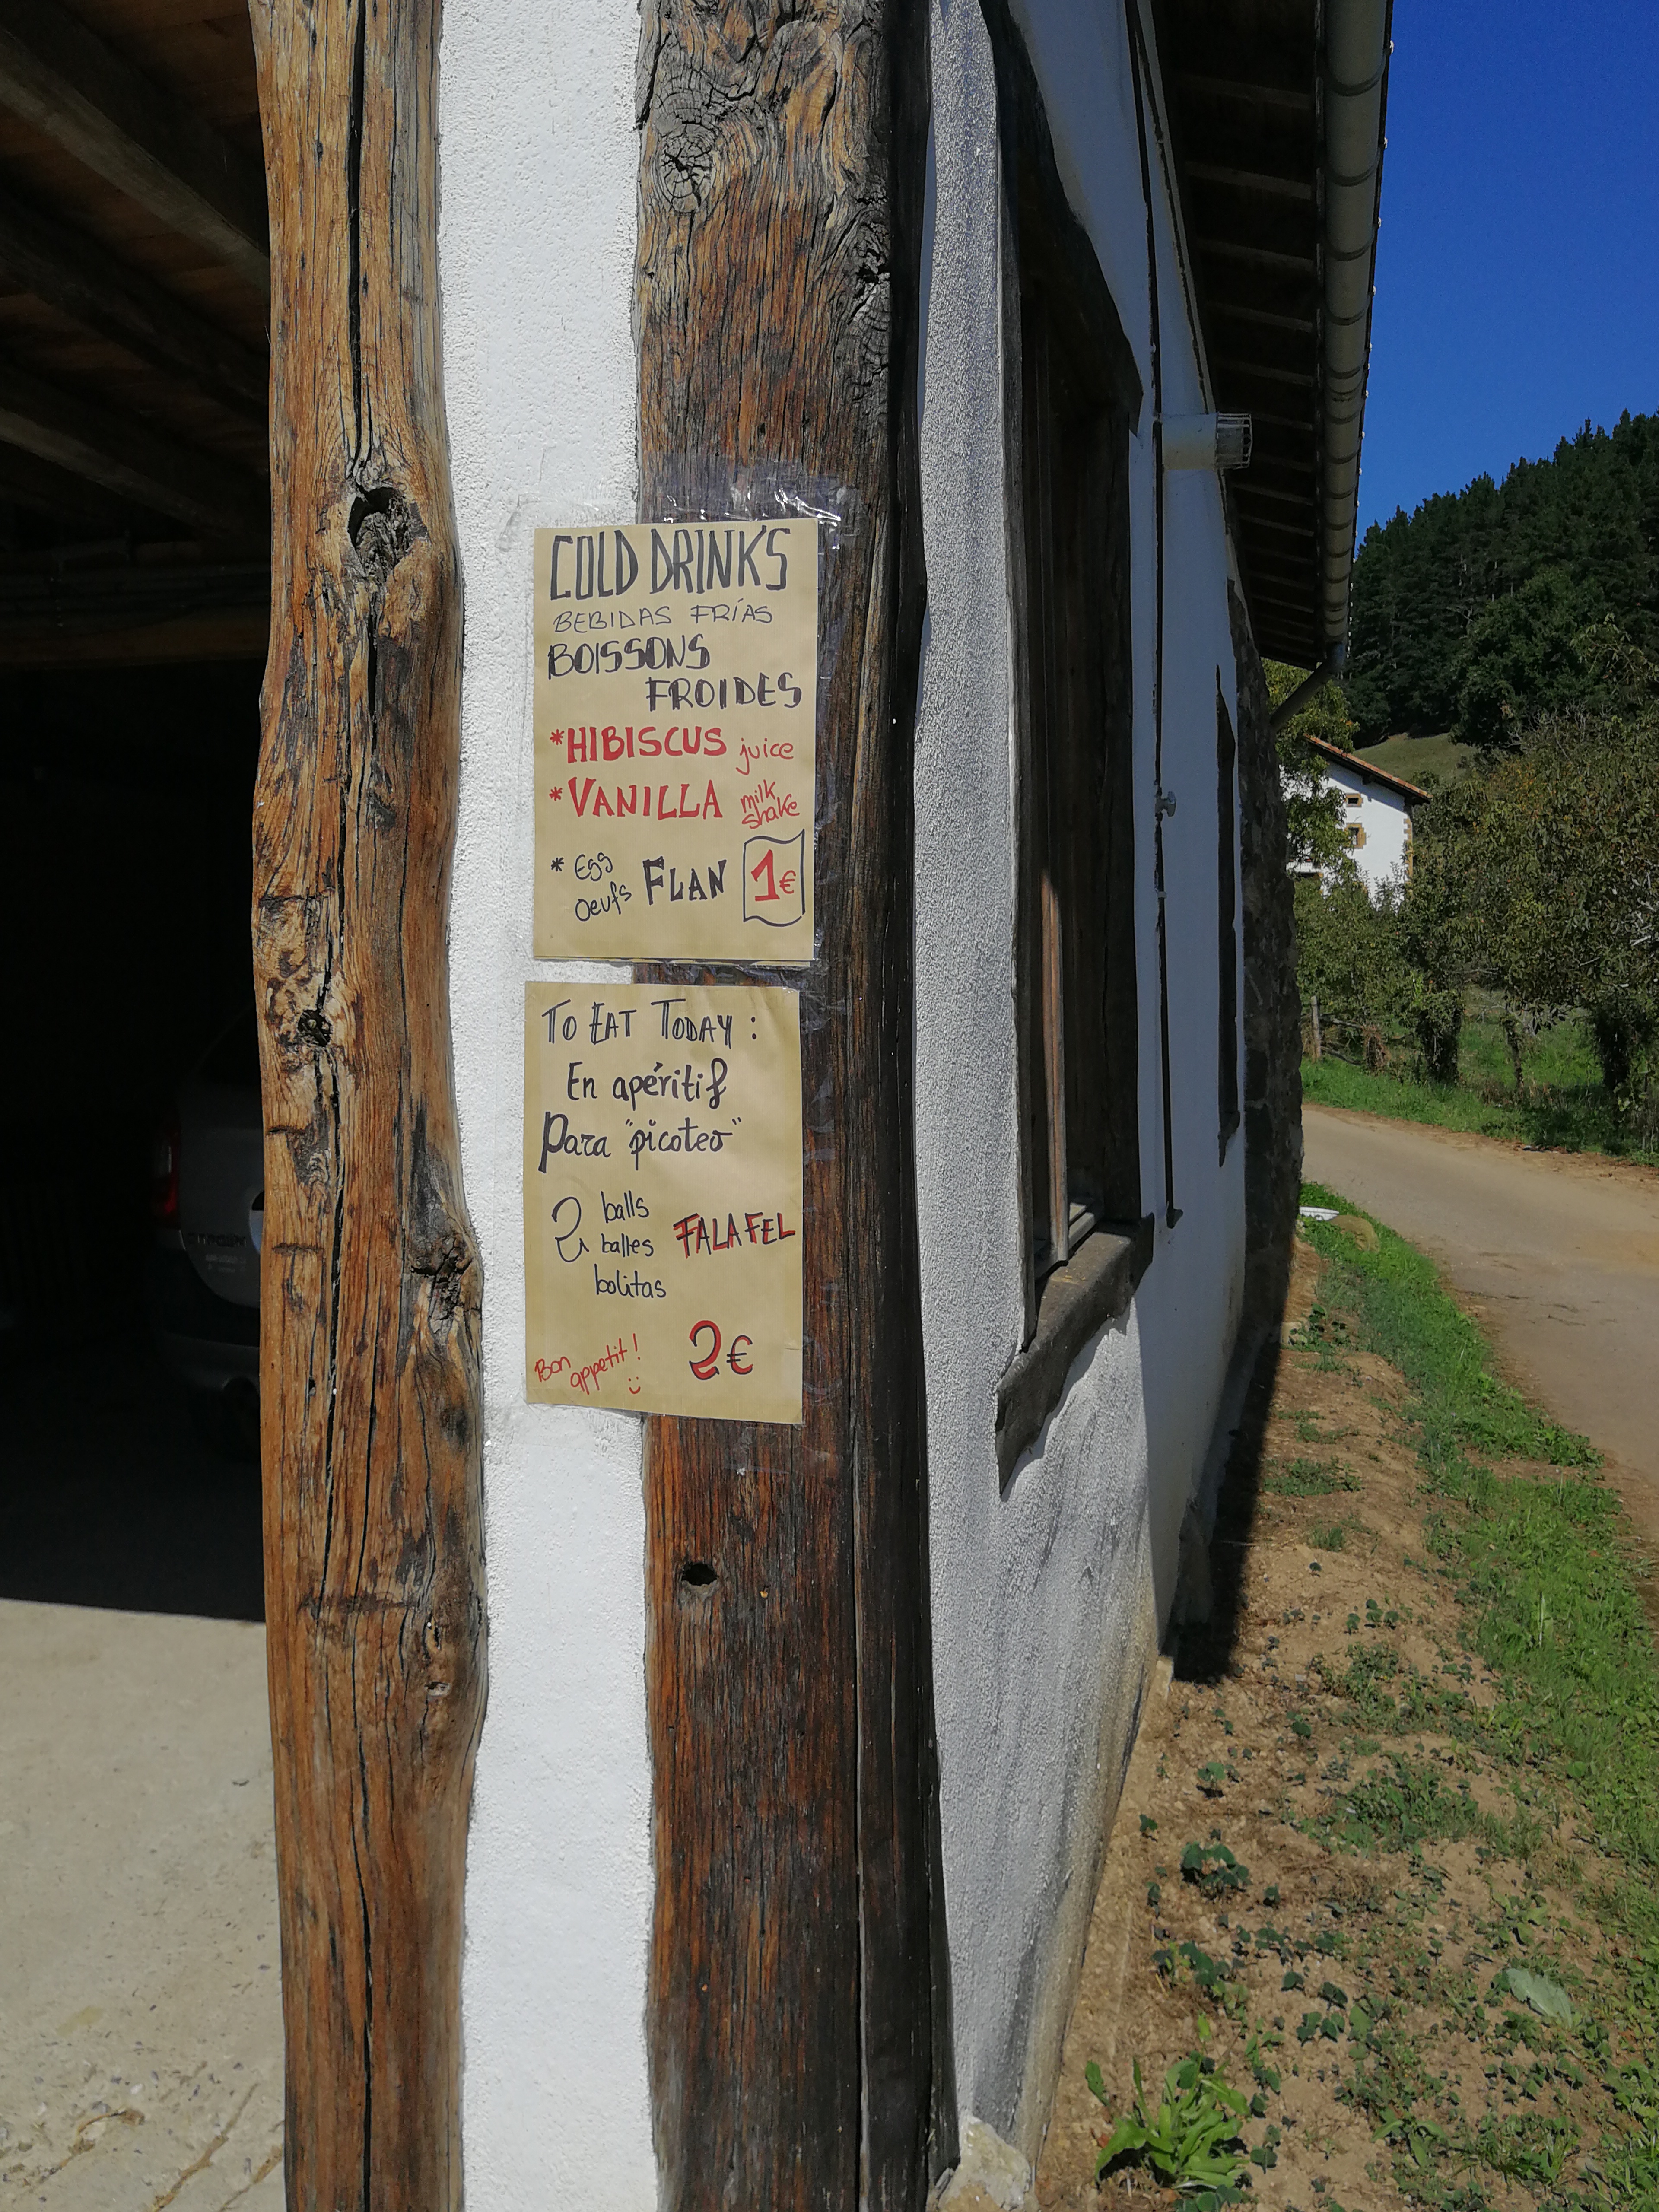 COLD DRINKS
BEBIDAS FRÍAS
BOISSONS
FROIDES
*HIBISCUS juice
*VANILLA milk shake
* Egg Oeufs FLAN 1€
TO EAT TODAY :
En apéritif
Para "picoteo"
2 balls
balles FALAFEL
bolitas
Bon appetit! 2€